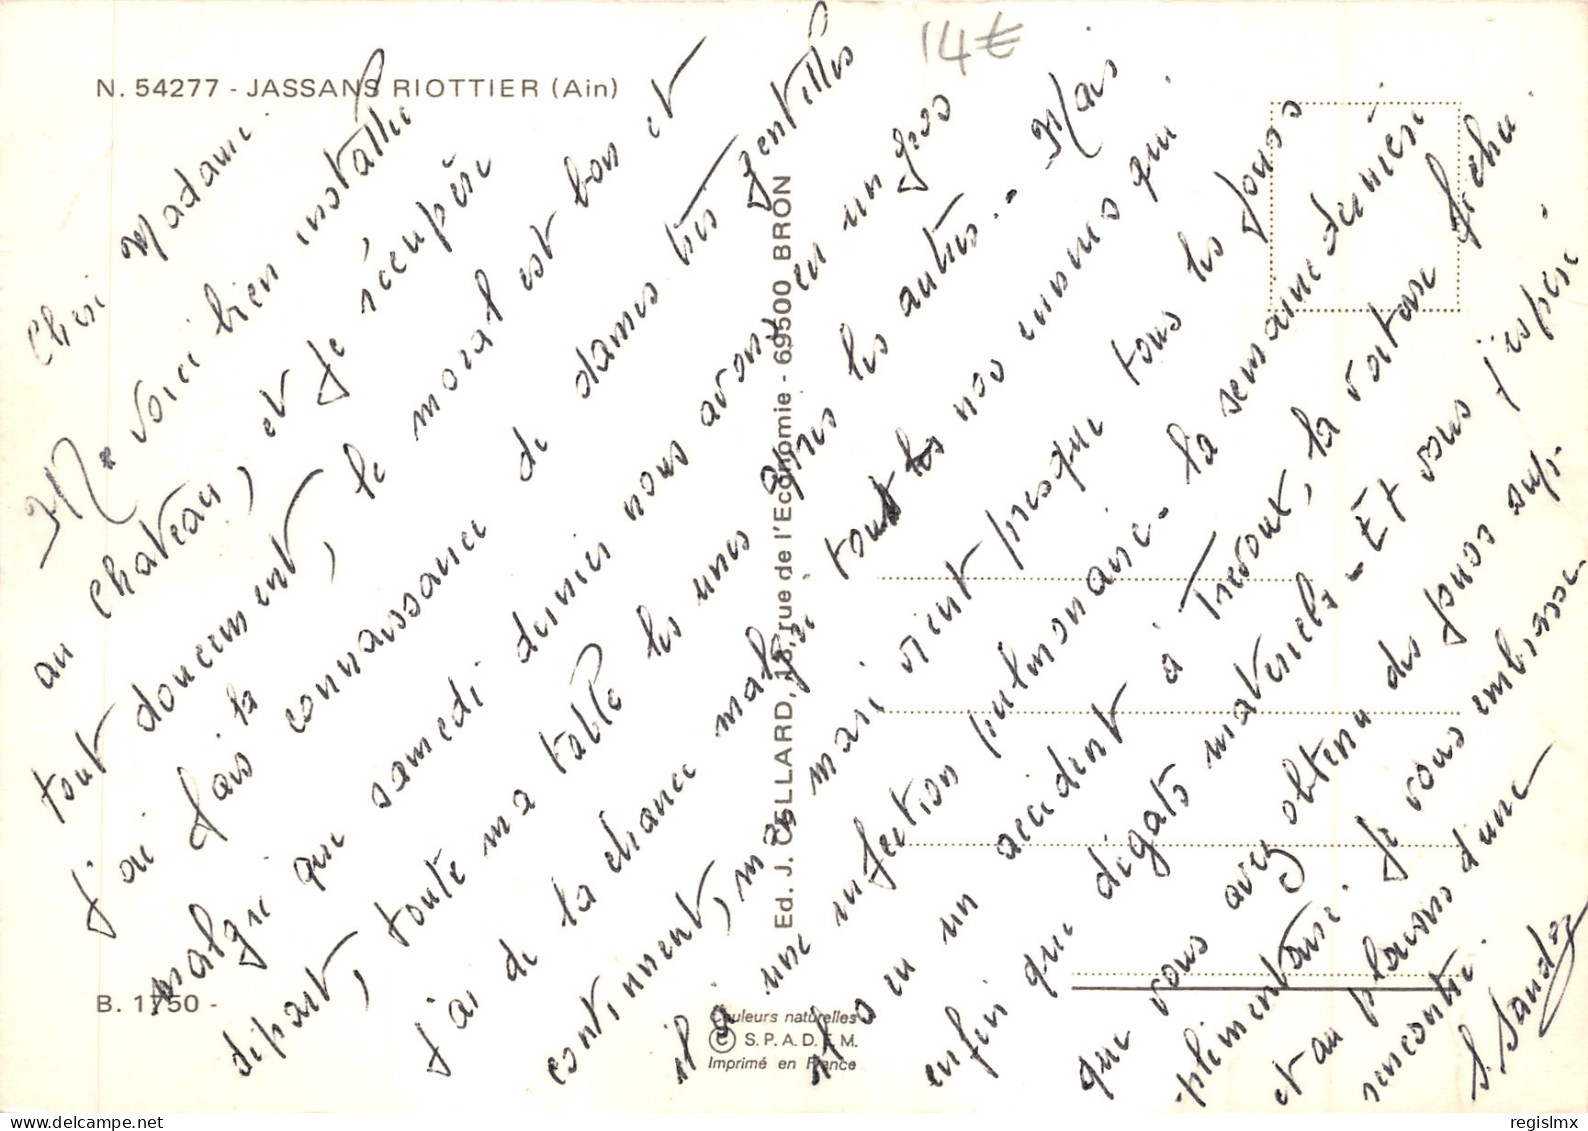 14€
N. 54277 - JASSANS RIOTTIER (Ain)
Chère Madame.
Me voici bien installée
au chateau, et je récupère
tout doucement, le moral est bon et
j'ai fais la connaissance de dames très gentilles
malgré que samedi dernier nous avons eu un gros
départ, toute ma table les unes après les autres.. Mais
j'ai de la chance malgré tout les nos ennuis qui
continuent, mon mari vient presque tous les jours
il a une infection pulmonaire - la semaine dernière
il a eu un accident à Trévoux, la voiture fichu.
enfin que dégats matériels - Et vous j'espère.
que vous avez obtenu des jours sup-
-plémentaire. Je vous embrasse
et au plaisir d'une
rencontre.
S. Sandoz
Ed. J. CELLARD, 15, rue de l'Economie - 69500 BRON
B. 1750 -
Couleurs naturelles
© S.P.A.D.E.M.
Imprimé en France
regislmx